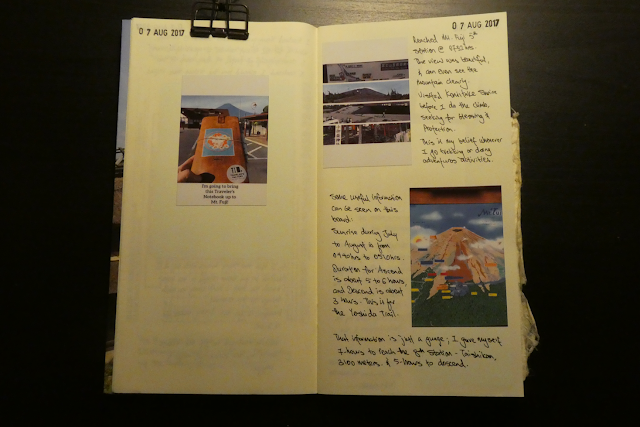 07 AUG 2017
I'm going to bring
this Traveler's
Notebook up to
Mt. Fuji
07 AUG 2017
Reached Mt. Fuji 5th
Station @
The view was beautiful,
& can even see the
Mountain clearly.
Visited Komitake Shrine
before I do the climb,
seeking for blessing &
Protection.
This is my belief whenever
I go trekking or doing
adventures activities.
Some useful information
can be seen on this
board:
Sunrise during July
to August is from
0440hrs to 0510hrs.
Duration for Ascend
is about 5 to 6 hours
and Descend is about
3 hours. This is for
the Yoshida Trail.
That information is just a guide; I gave myself
7-hours to reach the 8th Station - Taishikan,
3100 meters. & 5-hours to descend.